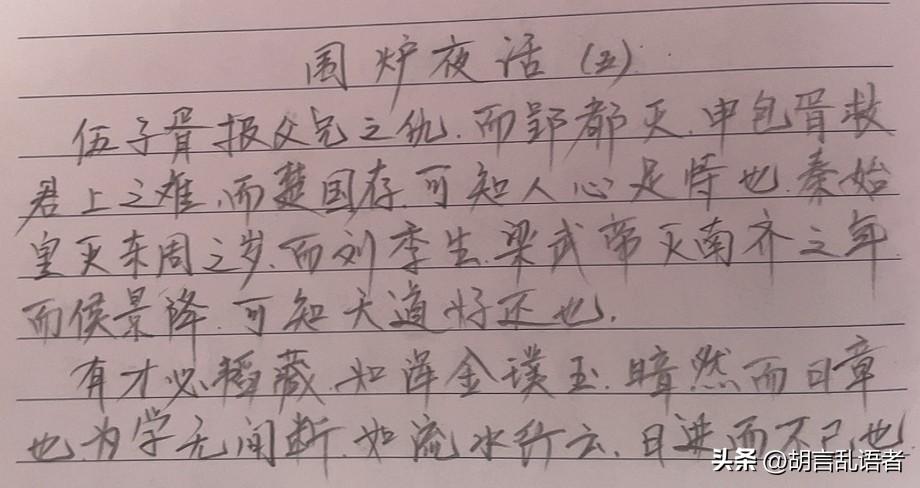 围炉夜话(五)
伍子胥报父兄之仇.而郢都灭.申包胥救
君上之难.而楚国存.可知人心足恃也.秦始
皇灭东周之岁.而刘季生.梁武帝灭南齐之年.
而侯景降.可知天道好还也.
有才必韬藏.如浑金璞玉.暗然而日章
也.为学无间断.如流水行云.日进而不已也
头条@胡言乱语者